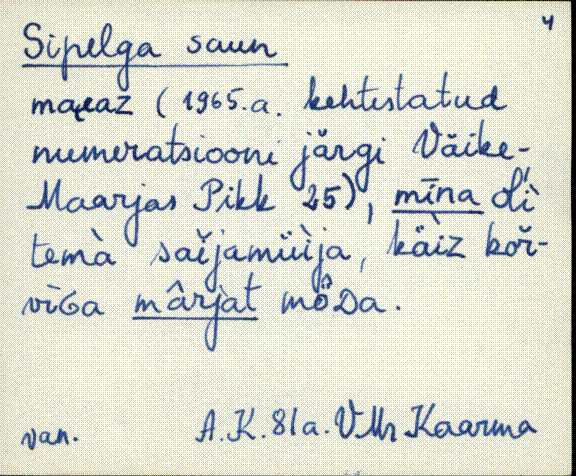 4
Sipelga saun
maeaz (1965.a. kehtestatud
numeratsiooni järgi Väike-
Maarjas Pikk 25), mīna oĺi
temà saĭjamüìja, käìz kořr-
vìGa mârjat möDa.
van. A.K. 81a. VMr Kaarma